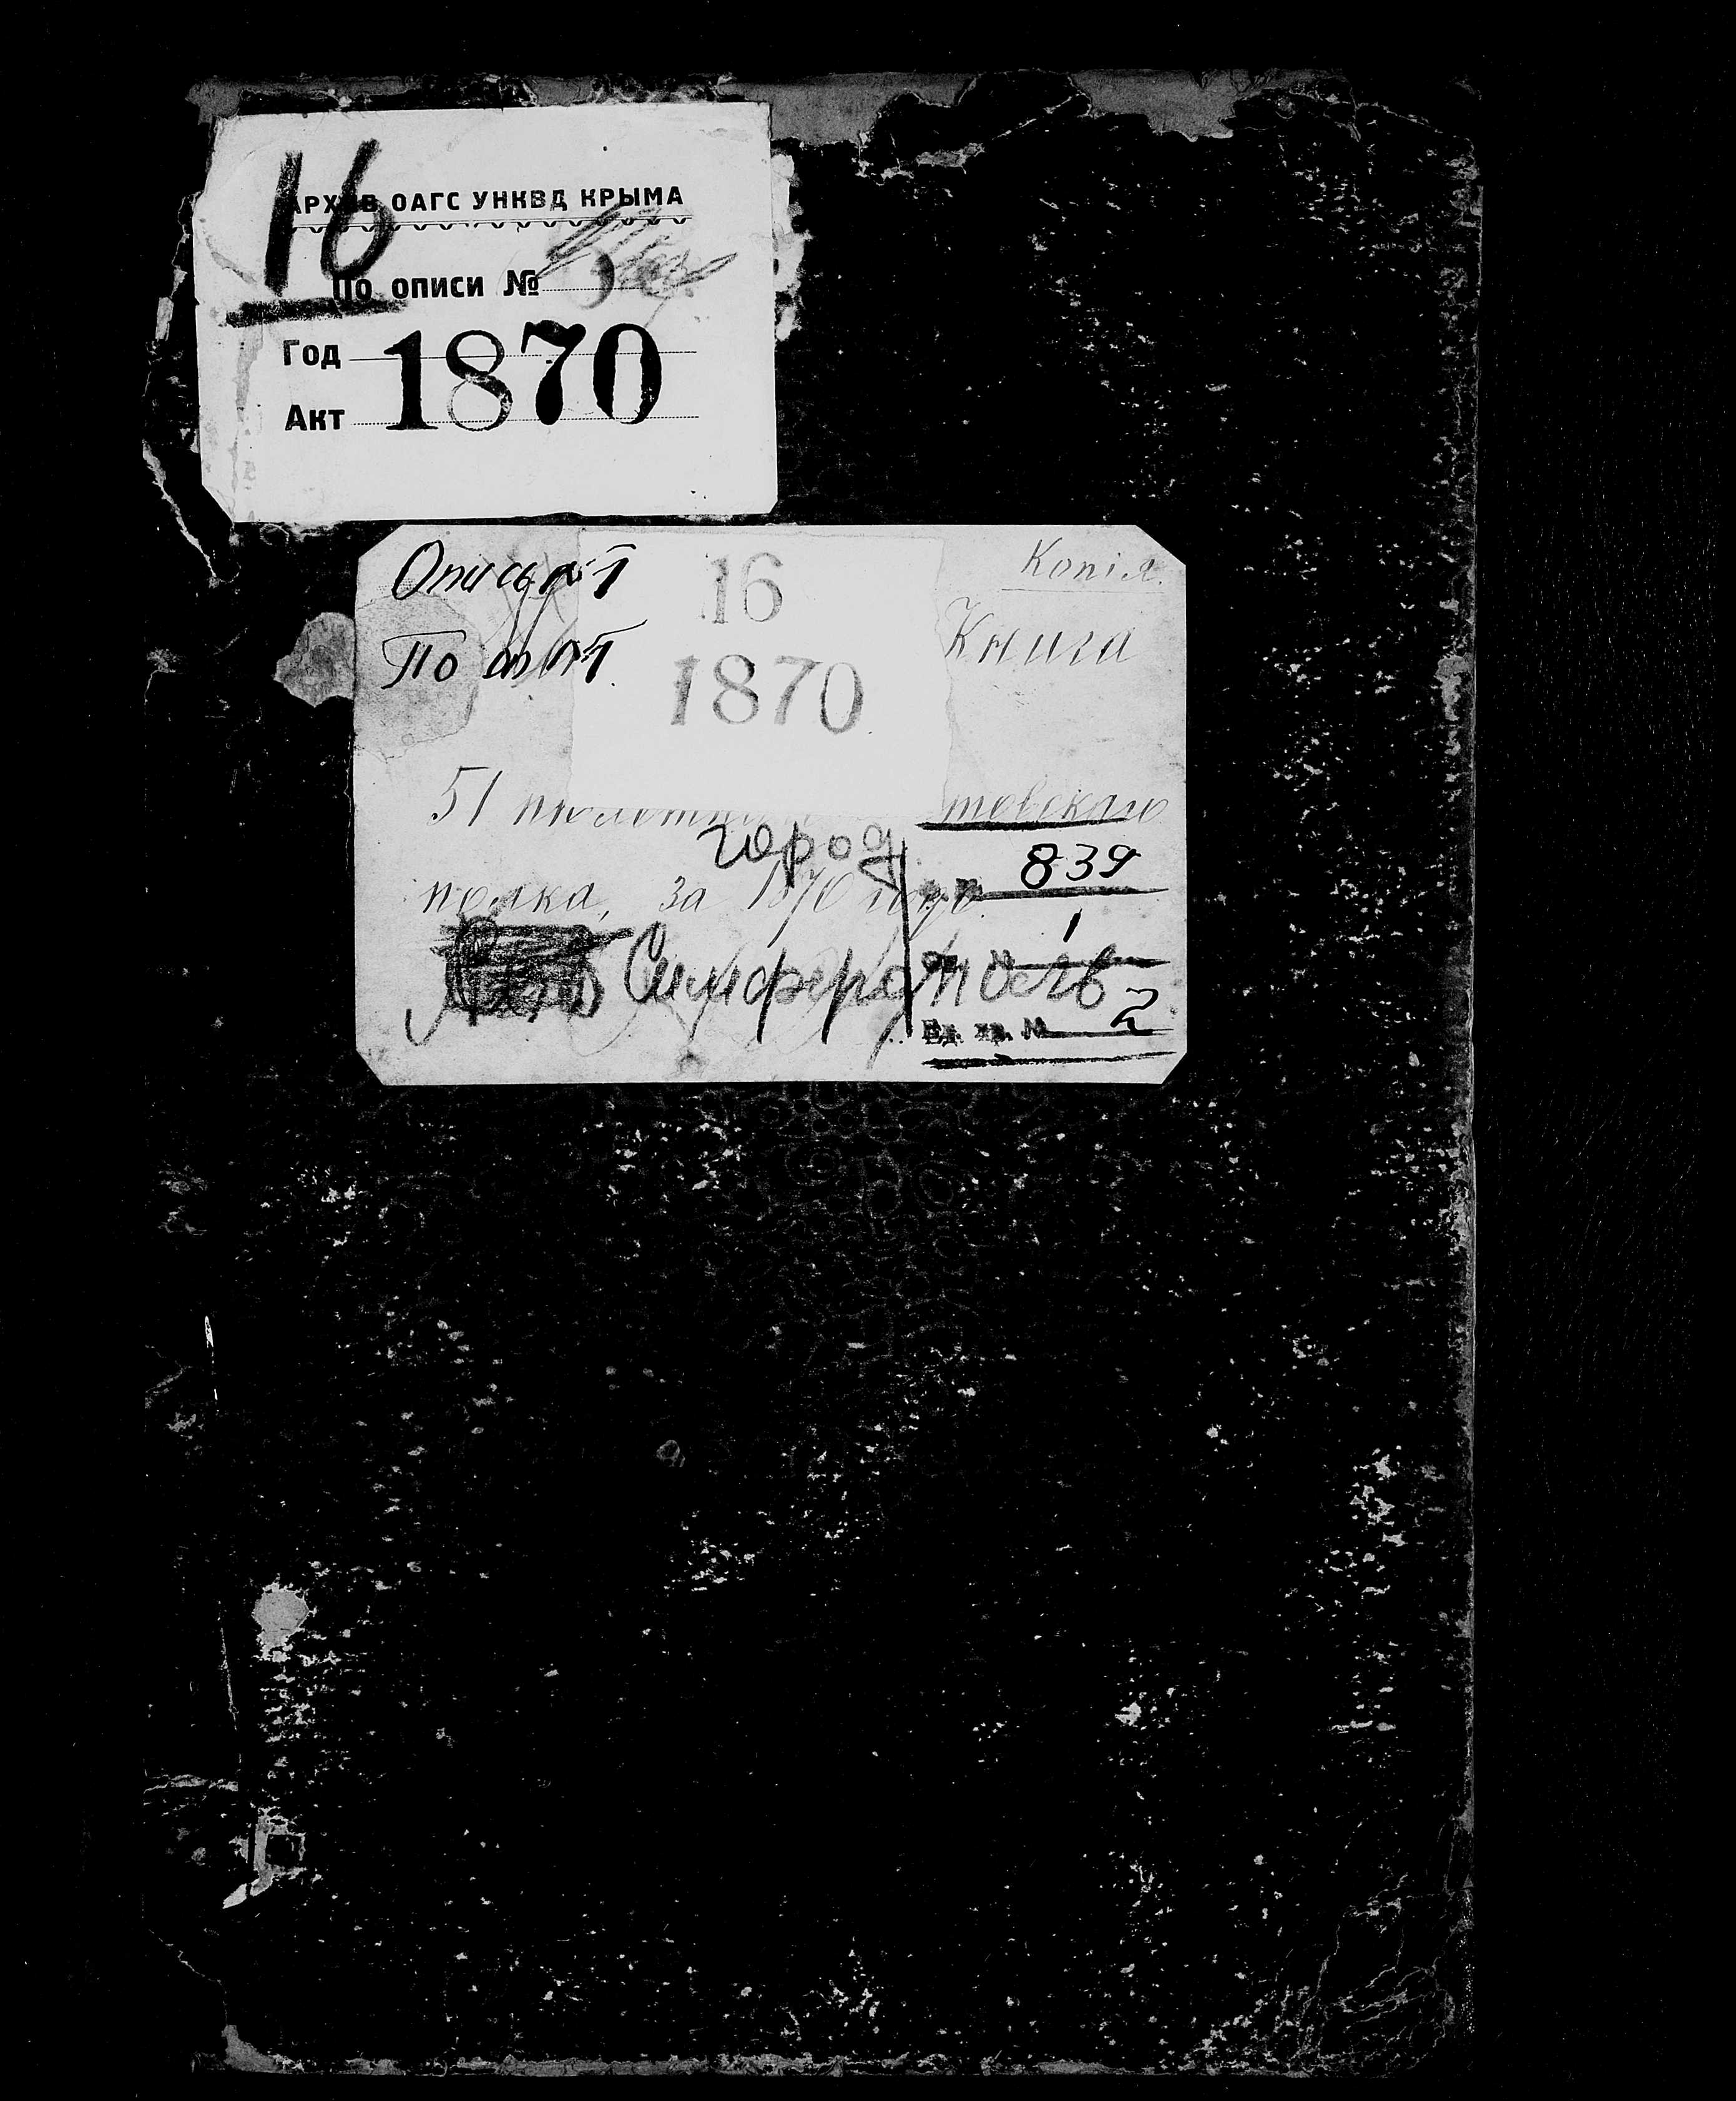 16
АРХИВ ОАГС УНКВД КРЫМА
По описи №
Год 1870
Акт
Опись №1
По оп №1
16
1870
Копія.
Книга
51 товскаго
город
839
полка, за 1870 годъ.
1
Симферополь
Ед. хр. № 2